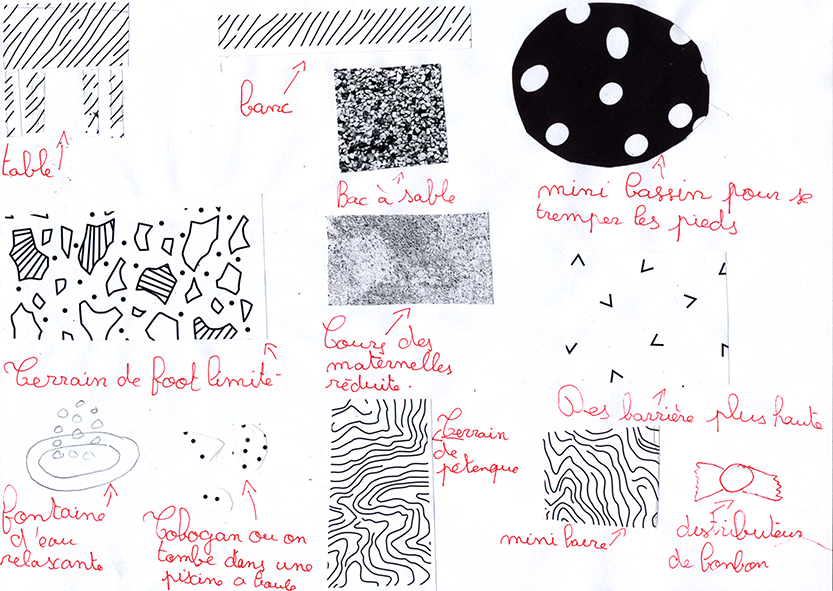 banc
table
Bac à sable
mini bassin pour se
tremper les pieds
Terrain de foot limité
Cours des
maternelles
réduite.
Des barrière plus haute
Terrain
de
pétenque
fontaine
d'eau
relaxante
Tobogan ou on
tombe dans une
piscine a boule
mini
distributeur
de bonbon